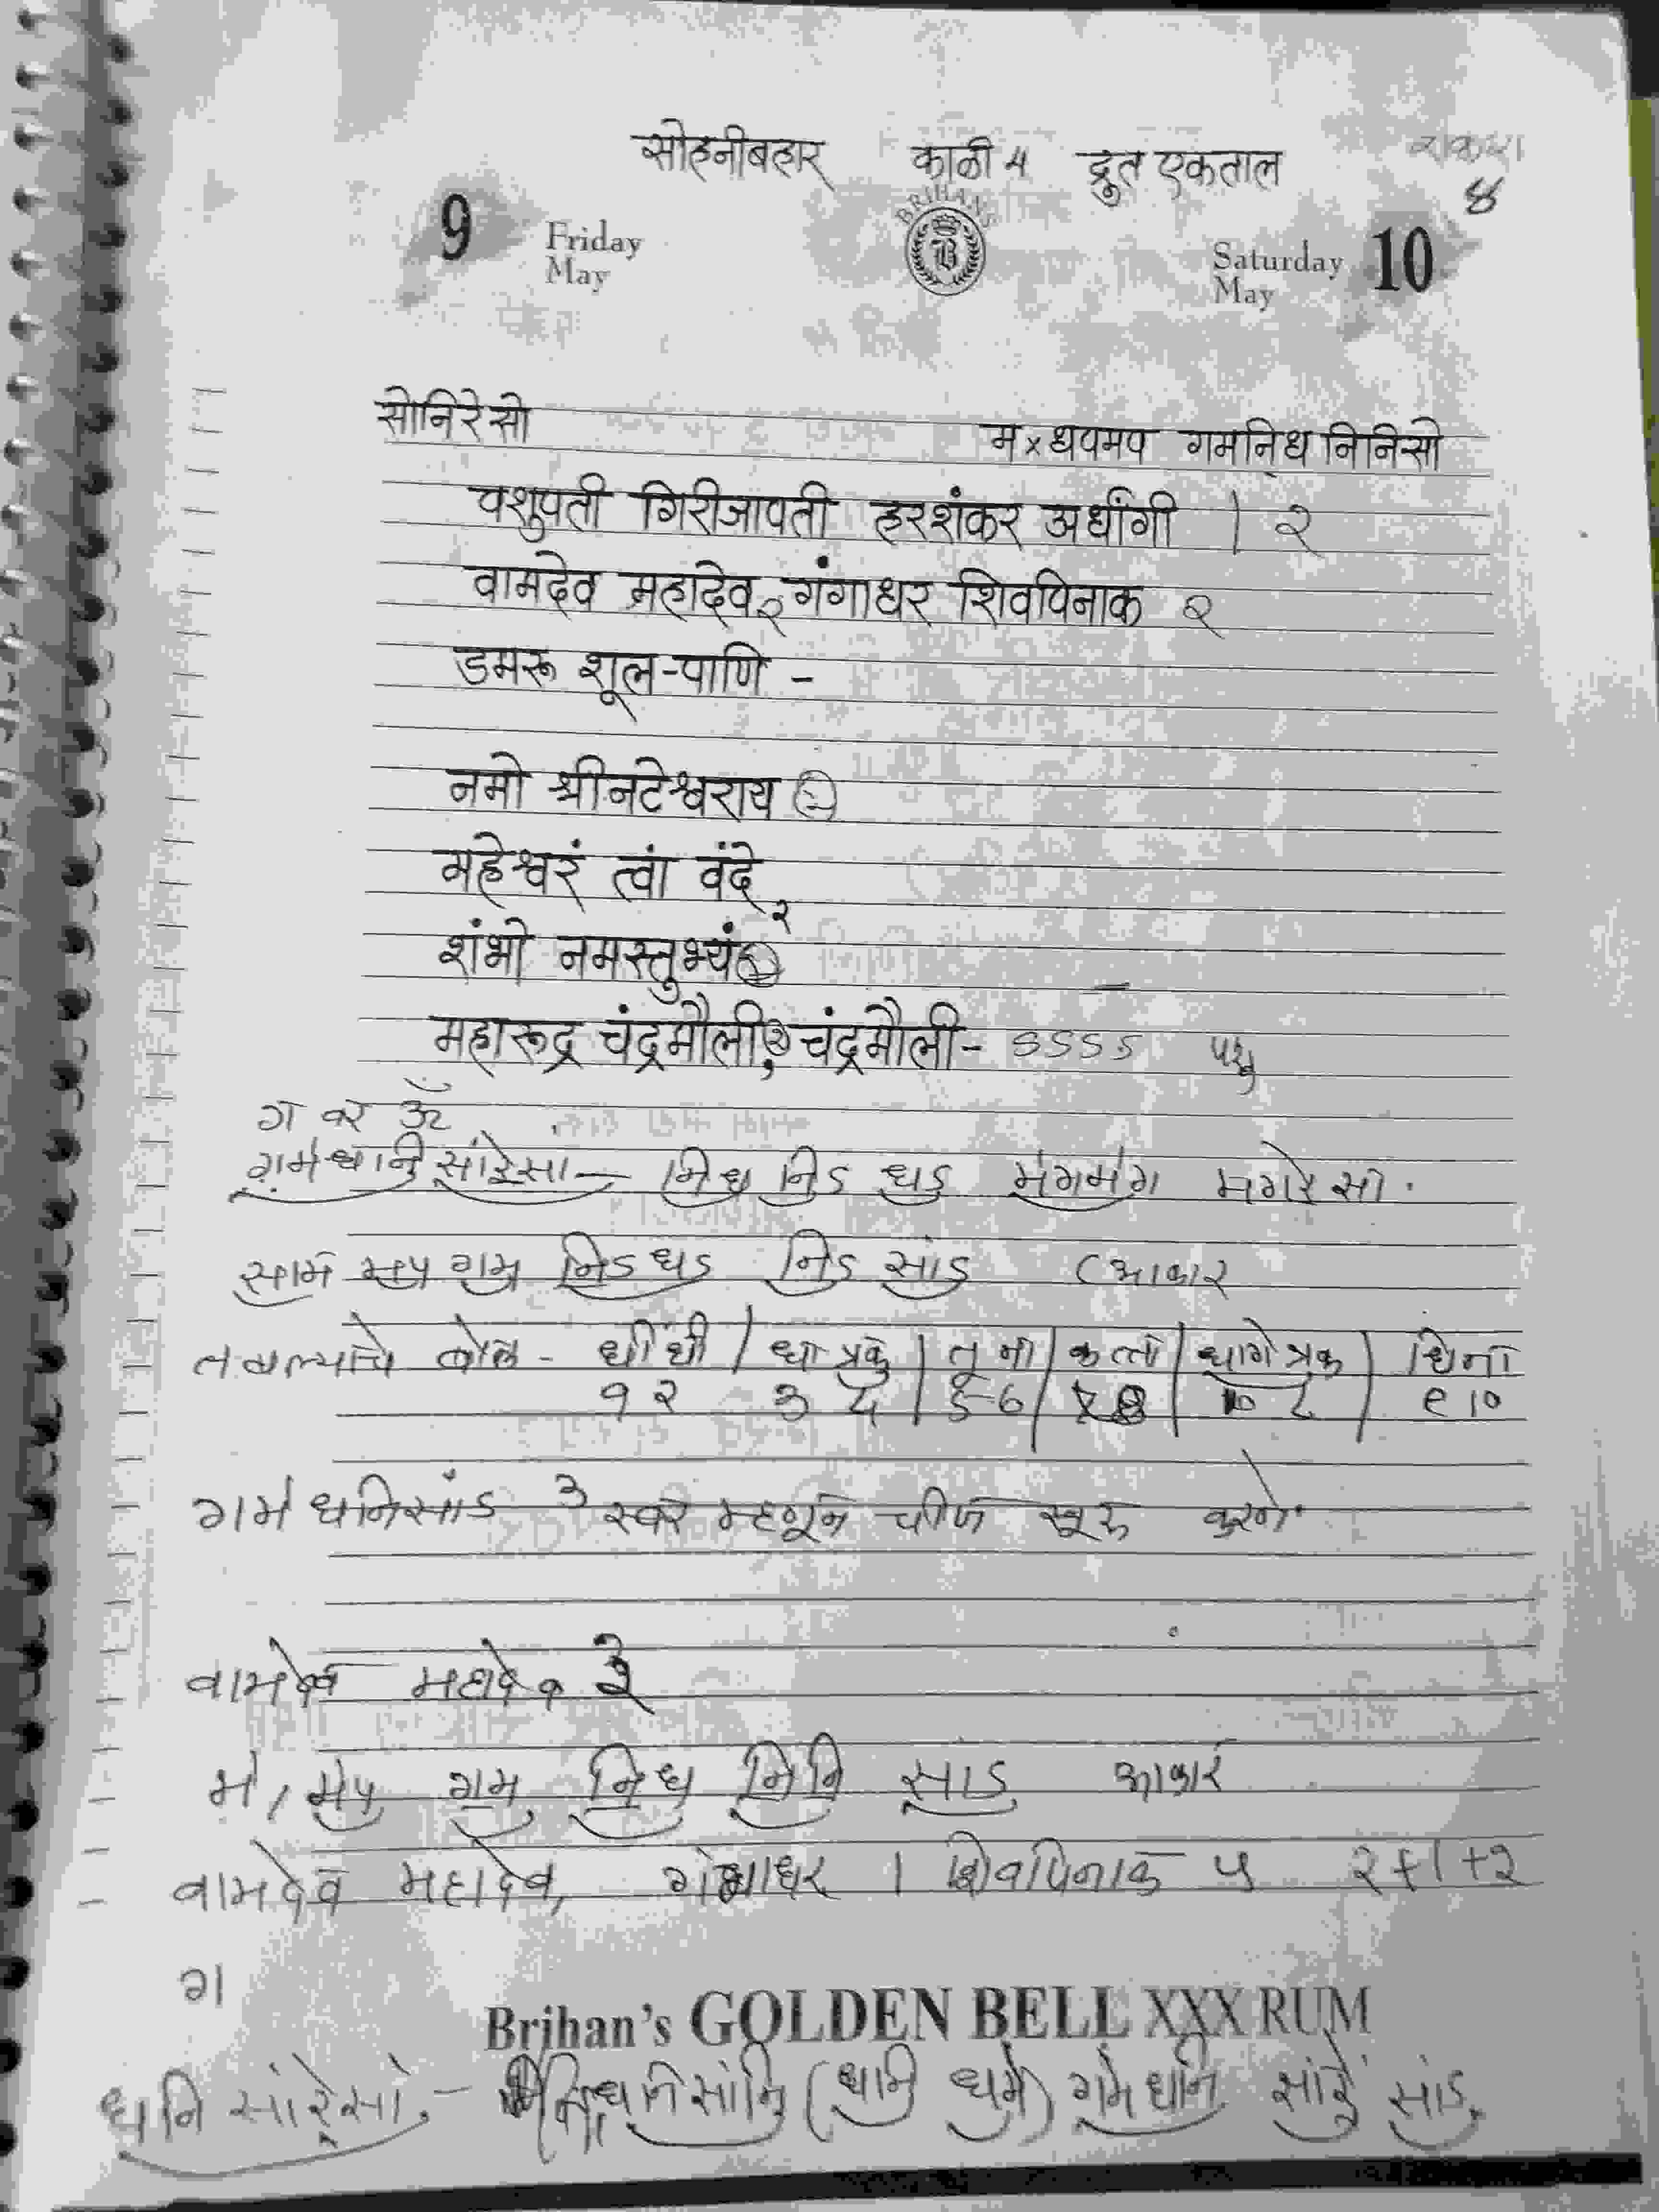 सोहनीबहार काळी ५ द्रुत एकताल
४
BRIHANS
9 Friday May Saturday May 10
सांनिरेंसां म x धपमप गमनि्ध निनिसां
पशुपती गिरीजापती हरशंकर अर्धांगी | २
वामदेव महादेव२ गंगाधर शिवपिनाक २
डमरू शूल-पाणि -
नमो श्रीनटेश्वराय
महेश्वरं त्वां वंदे २
शंभो नमस्तुभ्यं
महारूद्र चंद्रमौली, चंद्रमौली- ऽऽऽऽ पशु
ग वर ॐ
गमधानि सांरेंसां - निध निऽ धऽ मंगमंग मगरेसा.
साम मप गम निऽ धऽ निऽ सांऽ (आकार
तबल्याचे बोल - धीं धीं | धा त्रक | तू ना | क त्ता | धागे त्रक | धिना
१ २ ३ ८ ९ १०
गमधनिसांऽ ३ स्वर म्हणून चीज सूरू करणे.
वामदेव महादेव ३
म, मप गम निध निनि सांऽ आकार
वामदेव महादेव, गंगाधर | शिवपिनाक ५ २+१+२
ग
Brihan's GOLDEN BELL XXX RUM
धनि सांरेंसां - धनिसांनि (धानि धम) गमधनि सांरें सांऽ